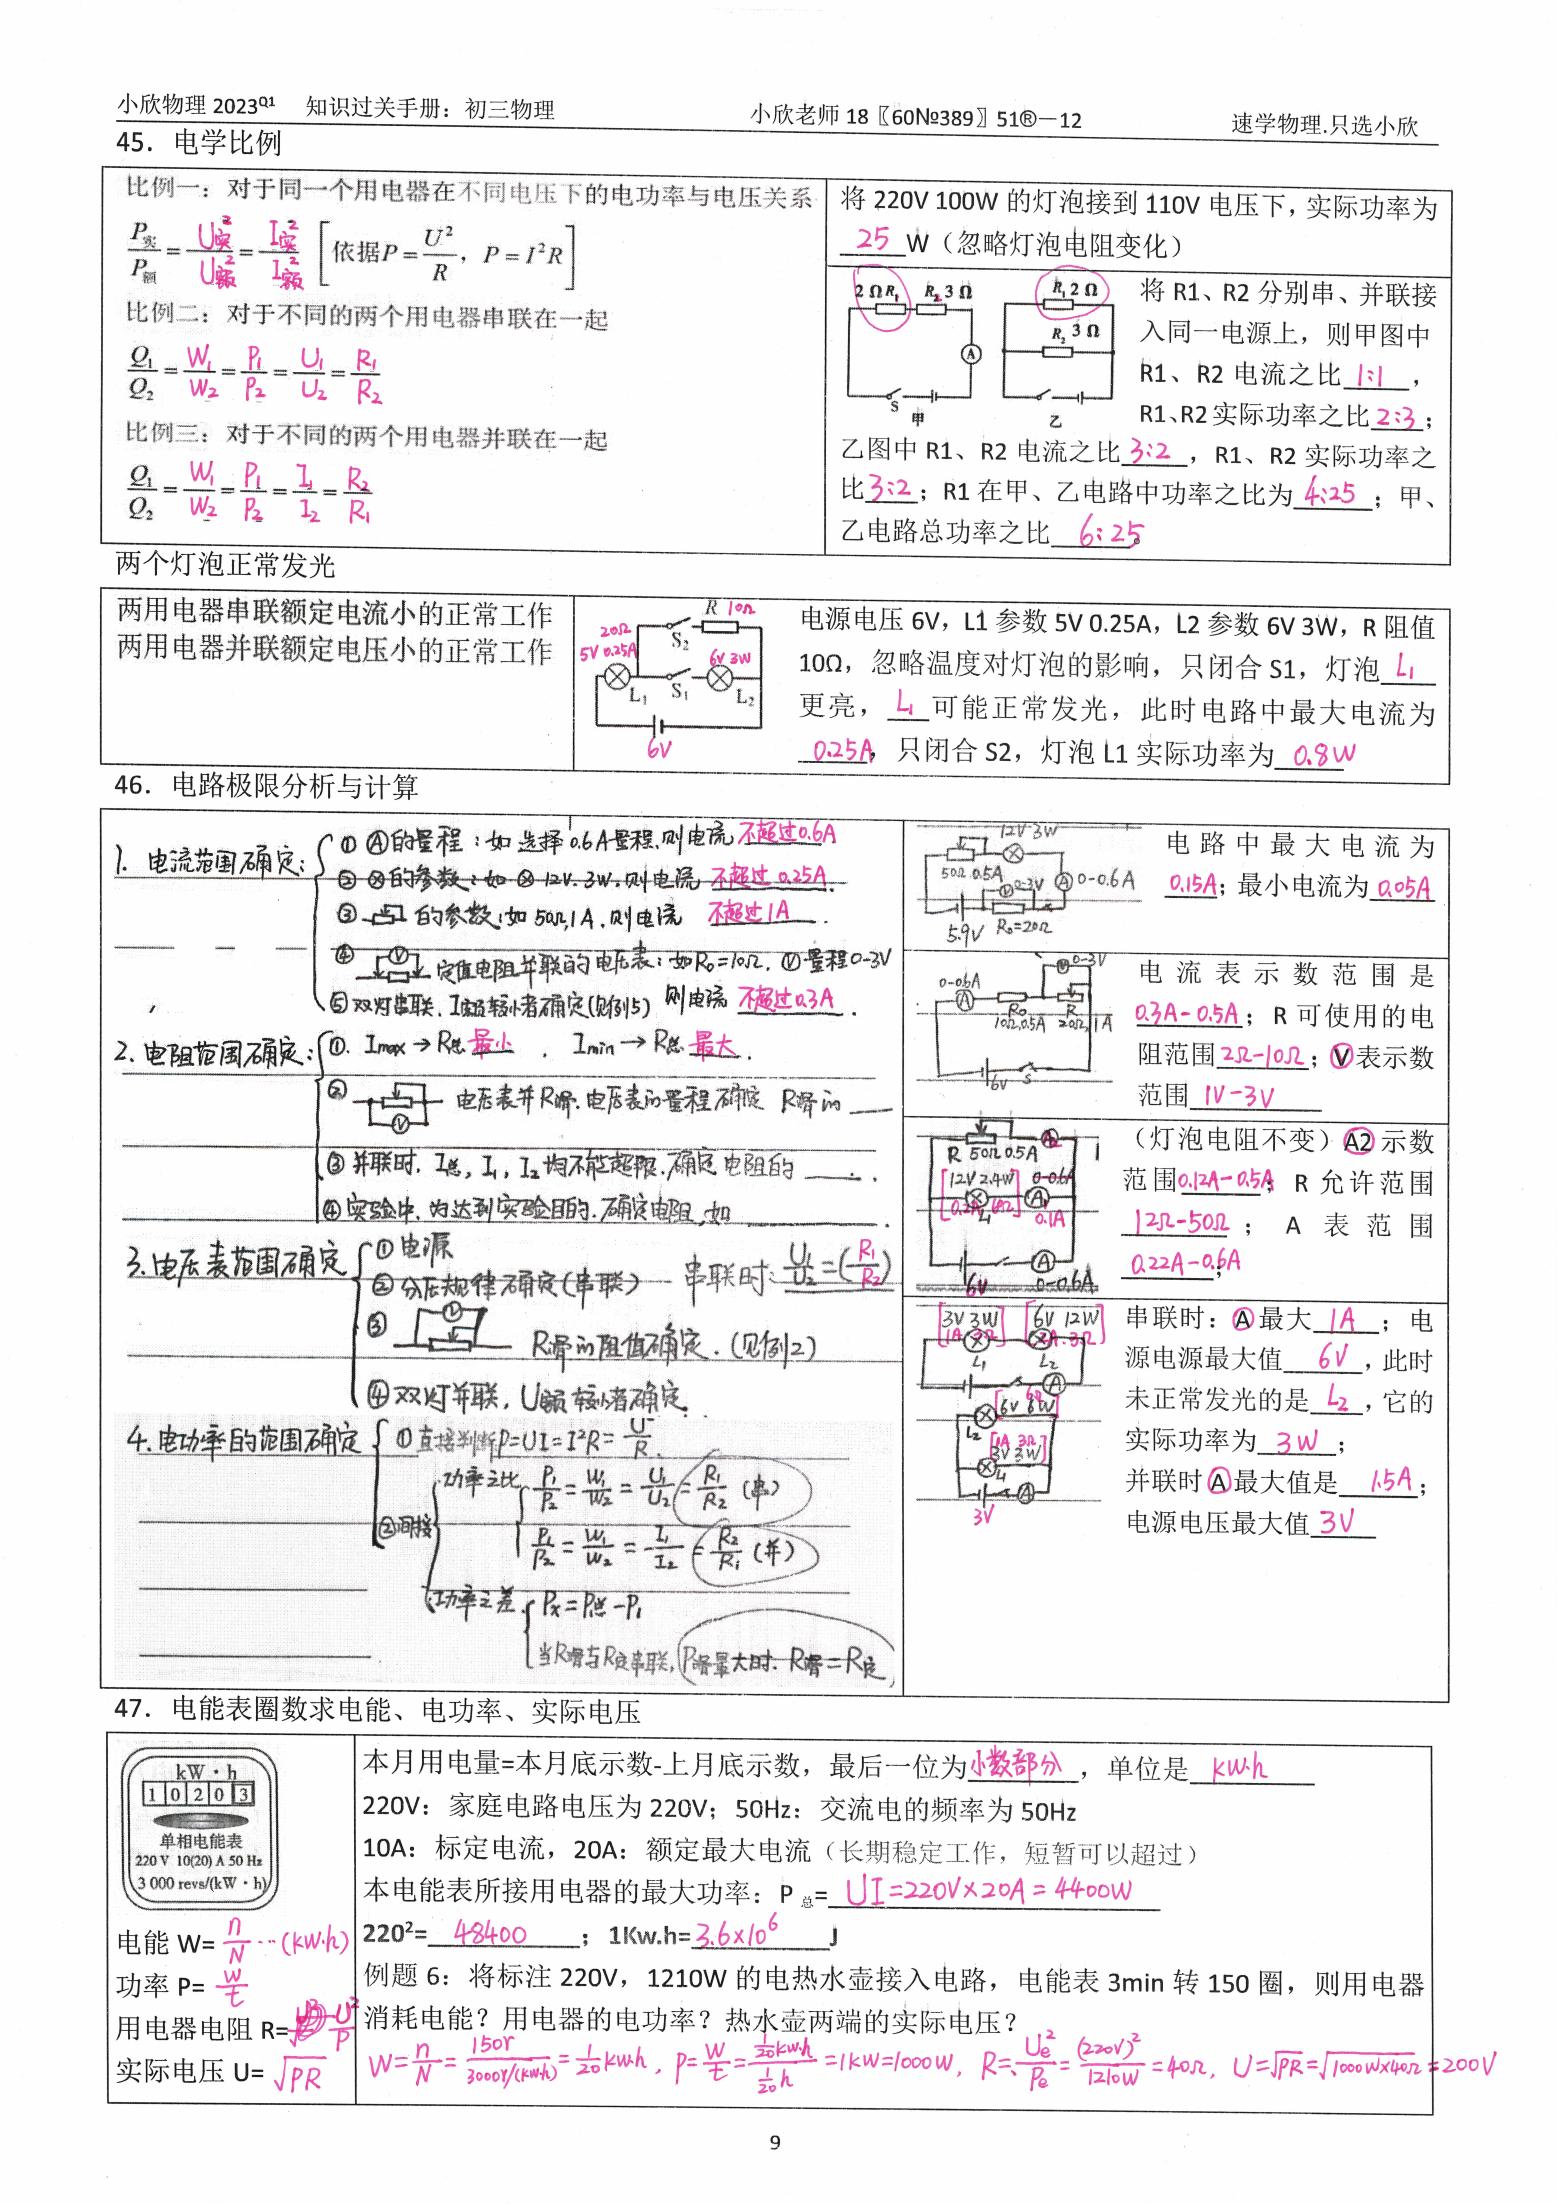 小欣物理 2023Q1 知识过关手册：初三物理 小欣老师 18〖60№389〗51®－12 速学物理.只选小欣
45．电学比例
比例一：对于同一个用电器在不同电压下的电功率与电压关系
P实/P额 = U实²/U额² = I实²/I额² [依据P=U²/R，P=I²R]
比例二：对于不同的两个用电器串联在一起
Q₁/Q₂ = W₁/W₂ = P₁/P₂ = U₁/U₂ = R₁/R₂
比例三：对于不同的两个用电器并联在一起
Q₁/Q₂ = W₁/W₂ = P₁/P₂ = I₁/I₂ = R₂/R₁
将 220V 100W 的灯泡接到 110V 电压下，实际功率为
25 W（忽略灯泡电阻变化）
2Ω R₁ R₂ 3Ω A S 甲
R₁ 2Ω R₂ 3Ω 乙
将 R1、R2 分别串、并联接
入同一电源上，则甲图中
R1、R2 电流之比 1:1，
R1、R2 实际功率之比 2:3；
乙图中 R1、R2 电流之比 3:2，R1、R2 实际功率之
比 3:2；R1 在甲、乙电路中功率之比为 4:25；甲、
乙电路总功率之比 6:25。
两个灯泡正常发光
两用电器串联额定电流小的正常工作
两用电器并联额定电压小的正常工作
R 10Ω
20Ω S₂
5V 0.25A 6V 3W
L₁ S₁ L₂
6V
电源电压 6V，L1 参数 5V 0.25A，L2 参数 6V 3W，R 阻值
10Ω，忽略温度对灯泡的影响，只闭合 S1，灯泡 L₁
更亮，L₁ 可能正常发光，此时电路中最大电流为
0.25A，只闭合 S2，灯泡 L1 实际功率为 0.8W
46．电路极限分析与计算
1. 电流范围确定：
① Ⓐ的量程：如选择0.6A量程.则电流 不超过0.6A
② ⊗的参数：如⊗12V.3W.则电流 不超过0.25A.
③ 的参数：如50Ω,1A.则电流 不超过1A.
④ V 定值电阻并联的电压表：如R₀=10Ω.Ⓥ量程0-3V
则电流 不超过0.3A.
⑤双灯串联.I额较小者确定(见例5)
2. 电阻范围确定：
①. Imax→R总 最小. Imin→R总 最大.
② V 电压表并R滑.电压表的量程确定 R滑的
③并联时.I总,I₁,I₂均不能超限.确定电阻的
④实验中.为达到实验目的.确定电阻,如
3.电压表范围确定
①电源
②分压规律确定(串联) 串联时：U₁/U₂=(R₁/R₂)
③ V R滑的阻值确定.(见例2)
④双灯并联，U额较小者确定.
4.电功率的范围确定
①直接判断P=UI=I²R=U²/R.
②间接
功率之比 P₁/P₂=W₁/W₂=U₁/U₂=R₁/R₂ (串)
P₁/P₂=W₁/W₂=I₁/I₂=R₂/R₁ (并)
功率之差 Px=P总-P₁
当R滑与R定串联,P滑最大时.R滑=R定
12V 3W
50Ω 0.5A 0-3V A 0-0.6A
5.9V R₀=20Ω
电路中最大电流为
0.15A；最小电流为 0.05A
0-3V
0-0.6A A
R₀ R
10Ω,0.5A 20Ω,1A
6V S
电流表示数范围是
0.3A-0.5A；R 可使用的电
阻范围 2Ω-10Ω；Ⓥ表示数
范围 1V-3V
R 50Ω 0.5A A₂
12V 2.4W 0-0.6A
L₁ A₁ 0.1A
6V A 0-0.6A
（灯泡电阻不变）A2 示数
范围 0.12A-0.5A；R 允许范围
12Ω-50Ω；A 表范围
0.22A-0.6A；
[3V 3W 1A 3Ω] [6V 12W 2A.3Ω]
L₁ L₂
A
6Ω
6V 6W
L₂
1A 3Ω
3V 3W
L₁
A
3V
串联时：Ⓐ最大 1A；电
源电源最大值 6V，此时
未正常发光的是 L₂，它的
实际功率为 3W；
并联时Ⓐ最大值是 1.5A；
电源电压最大值 3V
47．电能表圈数求电能、电功率、实际电压
kW·h
1 0 2 0 3
单相电能表
220 V 10(20) A 50 Hz
3 000 revs/(kW·h)
电能 W= n/N …(kW·h)
功率 P= W/t
用电器电阻 R= U²/P
实际电压 U= √PR
本月用电量=本月底示数-上月底示数，最后一位为小数部分，单位是 kW·h
220V：家庭电路电压为 220V；50Hz：交流电的频率为 50Hz
10A：标定电流，20A：额定最大电流（长期稳定工作，短暂可以超过）
本电能表所接用电器的最大功率：P总= UI=220V×20A=4400W
220²= 48400；1Kw.h= 3.6×10⁶ J
例题 6：将标注 220V，1210W 的电热水壶接入电路，电能表 3min 转 150 圈，则用电器
消耗电能？用电器的电功率？热水壶两端的实际电压？
W=n/N=150r/3000r/(kW·h)=1/20 kW·h，P=W/t=(1/20 kW·h)/(1/20 h)=1KW=1000W，R=Ue²/Pe=(220V)²/1210W=40Ω，U=√PR=√1000W×40Ω=200V
9